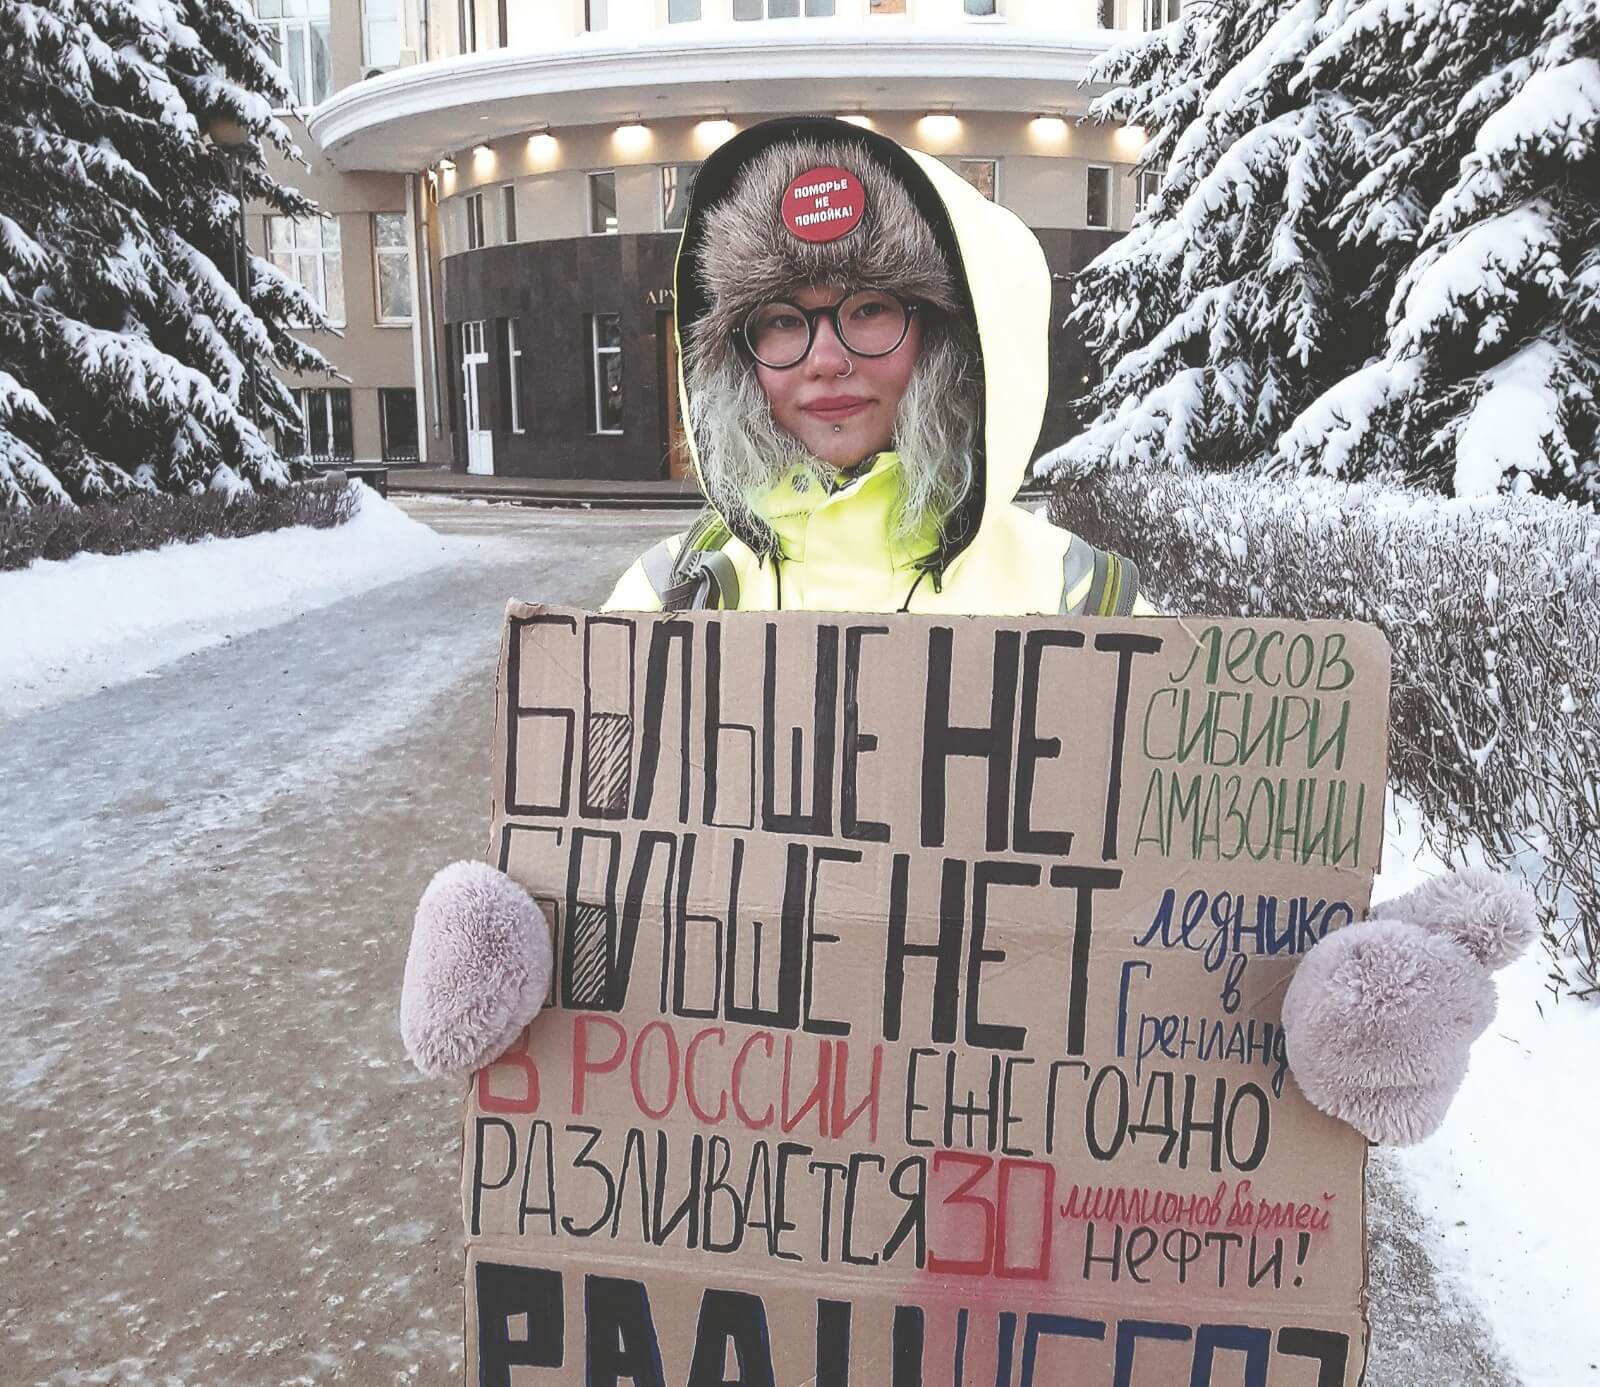 ПОМОРЬЕ
НЕ
ПОМОЙКА!
АРХ
БОЛЬШЕ НЕТ
лесов
СИБИРИ
АМАЗОНИИ
БОЛЬШЕ НЕТ
леднико
в
Гренланд
В РОССИИ ЕЖЕГОДНО
РАЗЛИВАЕТСЯ 30 миллионов баррелей
НЕФТИ!
РАДИ ЧЕГО?